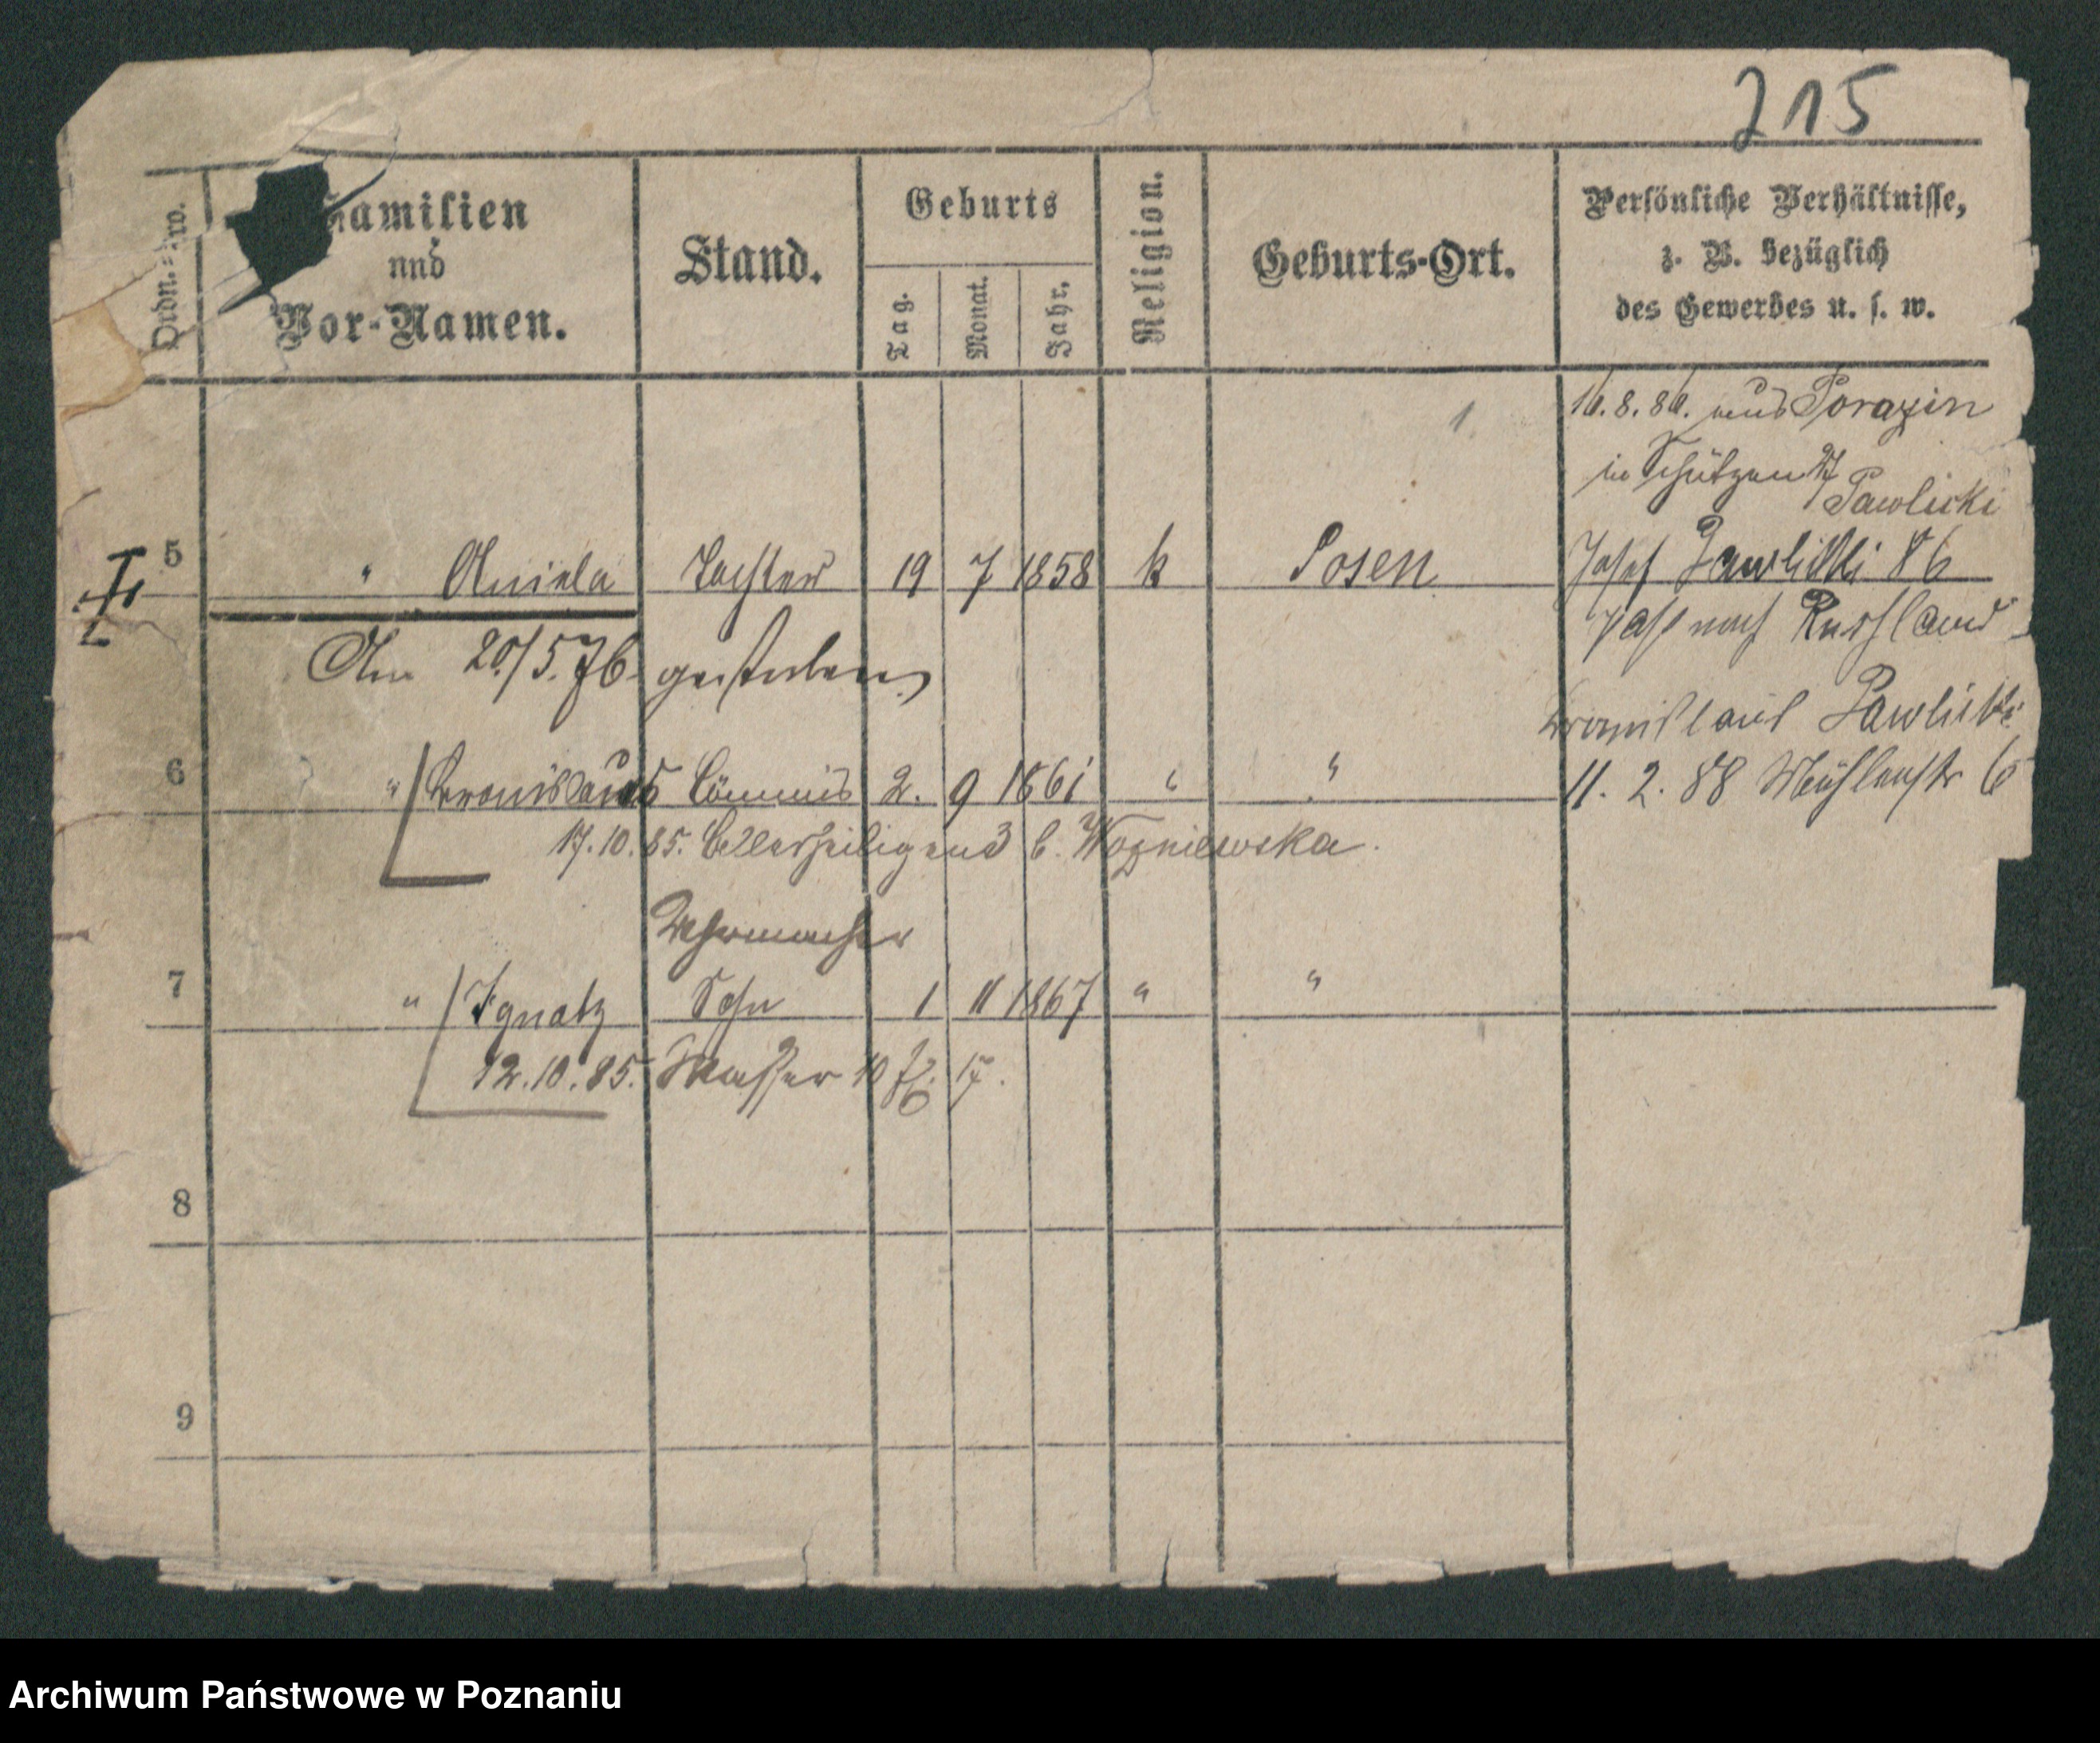 215
Ordn.=Nro.
Familien
und
Vor-Namen.
Stand.
Geburts
Tag.
Monat.
Jahr.
Religion.
Geburts-Ort.
Persönliche Verhältnisse,
z. B. bezüglich
des Gewerbes u. s. w.
16.8.86. aus Porazin
in Schützen 27
Pawlicki
5 " Aniela Tochter 19 7 1858 k Posen Josef Pawlicki 86
Paß nach Russland
Am 20/5.76. gestorben
Bronislaus Pawlicki
6 " Bronislaus Commis 2. 9 1861 " " 11. 2. 88 Mühlenstr 6
17.10.85. Allerheiligen 3 b. Wozniewska.
Uhrmacher
7 " Ignatz Sohn 1 11 1867 " "
12.10.85. Wasser 10 17.
8
9
Archiwum Państwowe w Poznaniu